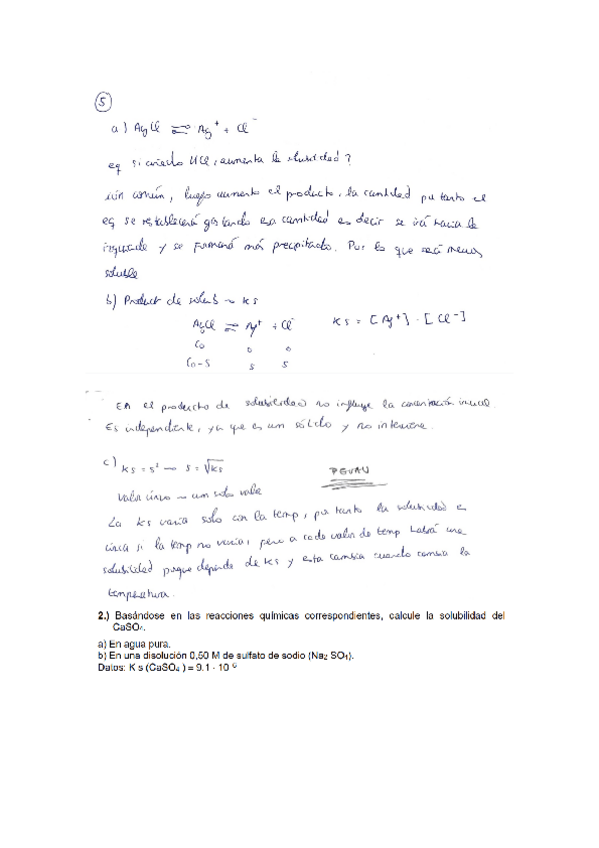 5
a) AgCl ⇌ Ag⁺ + Cl⁻
eq si añado HCl, aumenta la solubilidad?
ion común, luego aumento el producto, la cantidad por tanto el
eq se restablecerá gastando esa cantidad es decir se irá hacia la
izquierda y se formará más precipitado. Por lo que será menos
soluble
b) Product de solub ~ Ks
AgCl ⇌ Ag⁺ + Cl⁻ Ks = [Ag⁺] · [Cl⁻]
Co 0 0
Co-S S S
En el producto de solubilidad no influye la concentración inicial.
Es independiente, ya que es un sólido y no interviene.
c) Ks = s² → s = √Ks PEVAU
Valor único ~ un solo valor
La Ks varía solo con la temp, por tanto la solubilidad es
única si la temp no varía, pero a cada valor de temp habrá una
solubilidad porque depende de Ks y esta cambia cuando cambia la
temperatura.
2.) Basándose en las reacciones químicas correspondientes, calcule la solubilidad del
CaSO₄.
a) En agua pura.
b) En una disolución 0,50 M de sulfato de sodio (Na₂ SO₄).
Datos: K s (CaSO₄ ) = 9.1 · 10⁻⁶